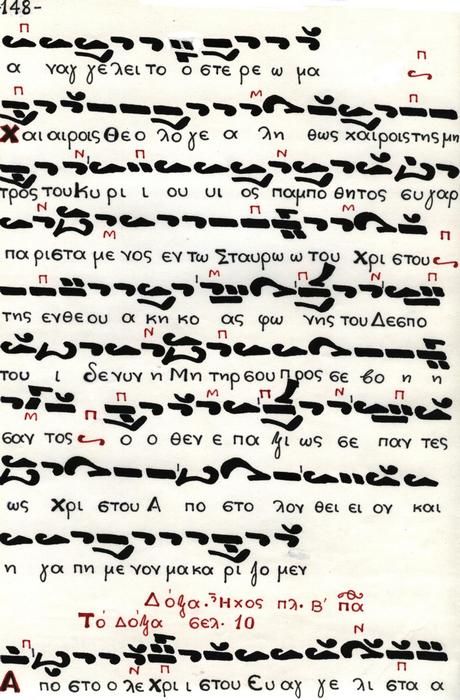 -148-
α ναγ γε λει το ο στε ρε ω μα
Χαι αιροις Θε ο λο γε α λη θως χαιροις της μη
τρος του Κυ ρι ι ου υι ος παμπο θητος συ γαρ
πα ριστα με νος εν τω Σταυρω ω του Χρι στου
της ενθε ου α κη κο ας φω νης του Δεσπο
του ι δε νυν η Μη τηρ σου προς σε βο η η
σαν τος ο ο θεν ε πα ξι ως σε παν τες
ως Χρι στου Α πο στο λον θει ει ον και
η γα πη με νον μα κα ρι ζο μεν
Δόξα. Ἦχος πλ. Β' πα
Τό Δόξα σελ. 10
Α πο στο ο λε Χρι ι στου Ευ αγ γε λι στα α